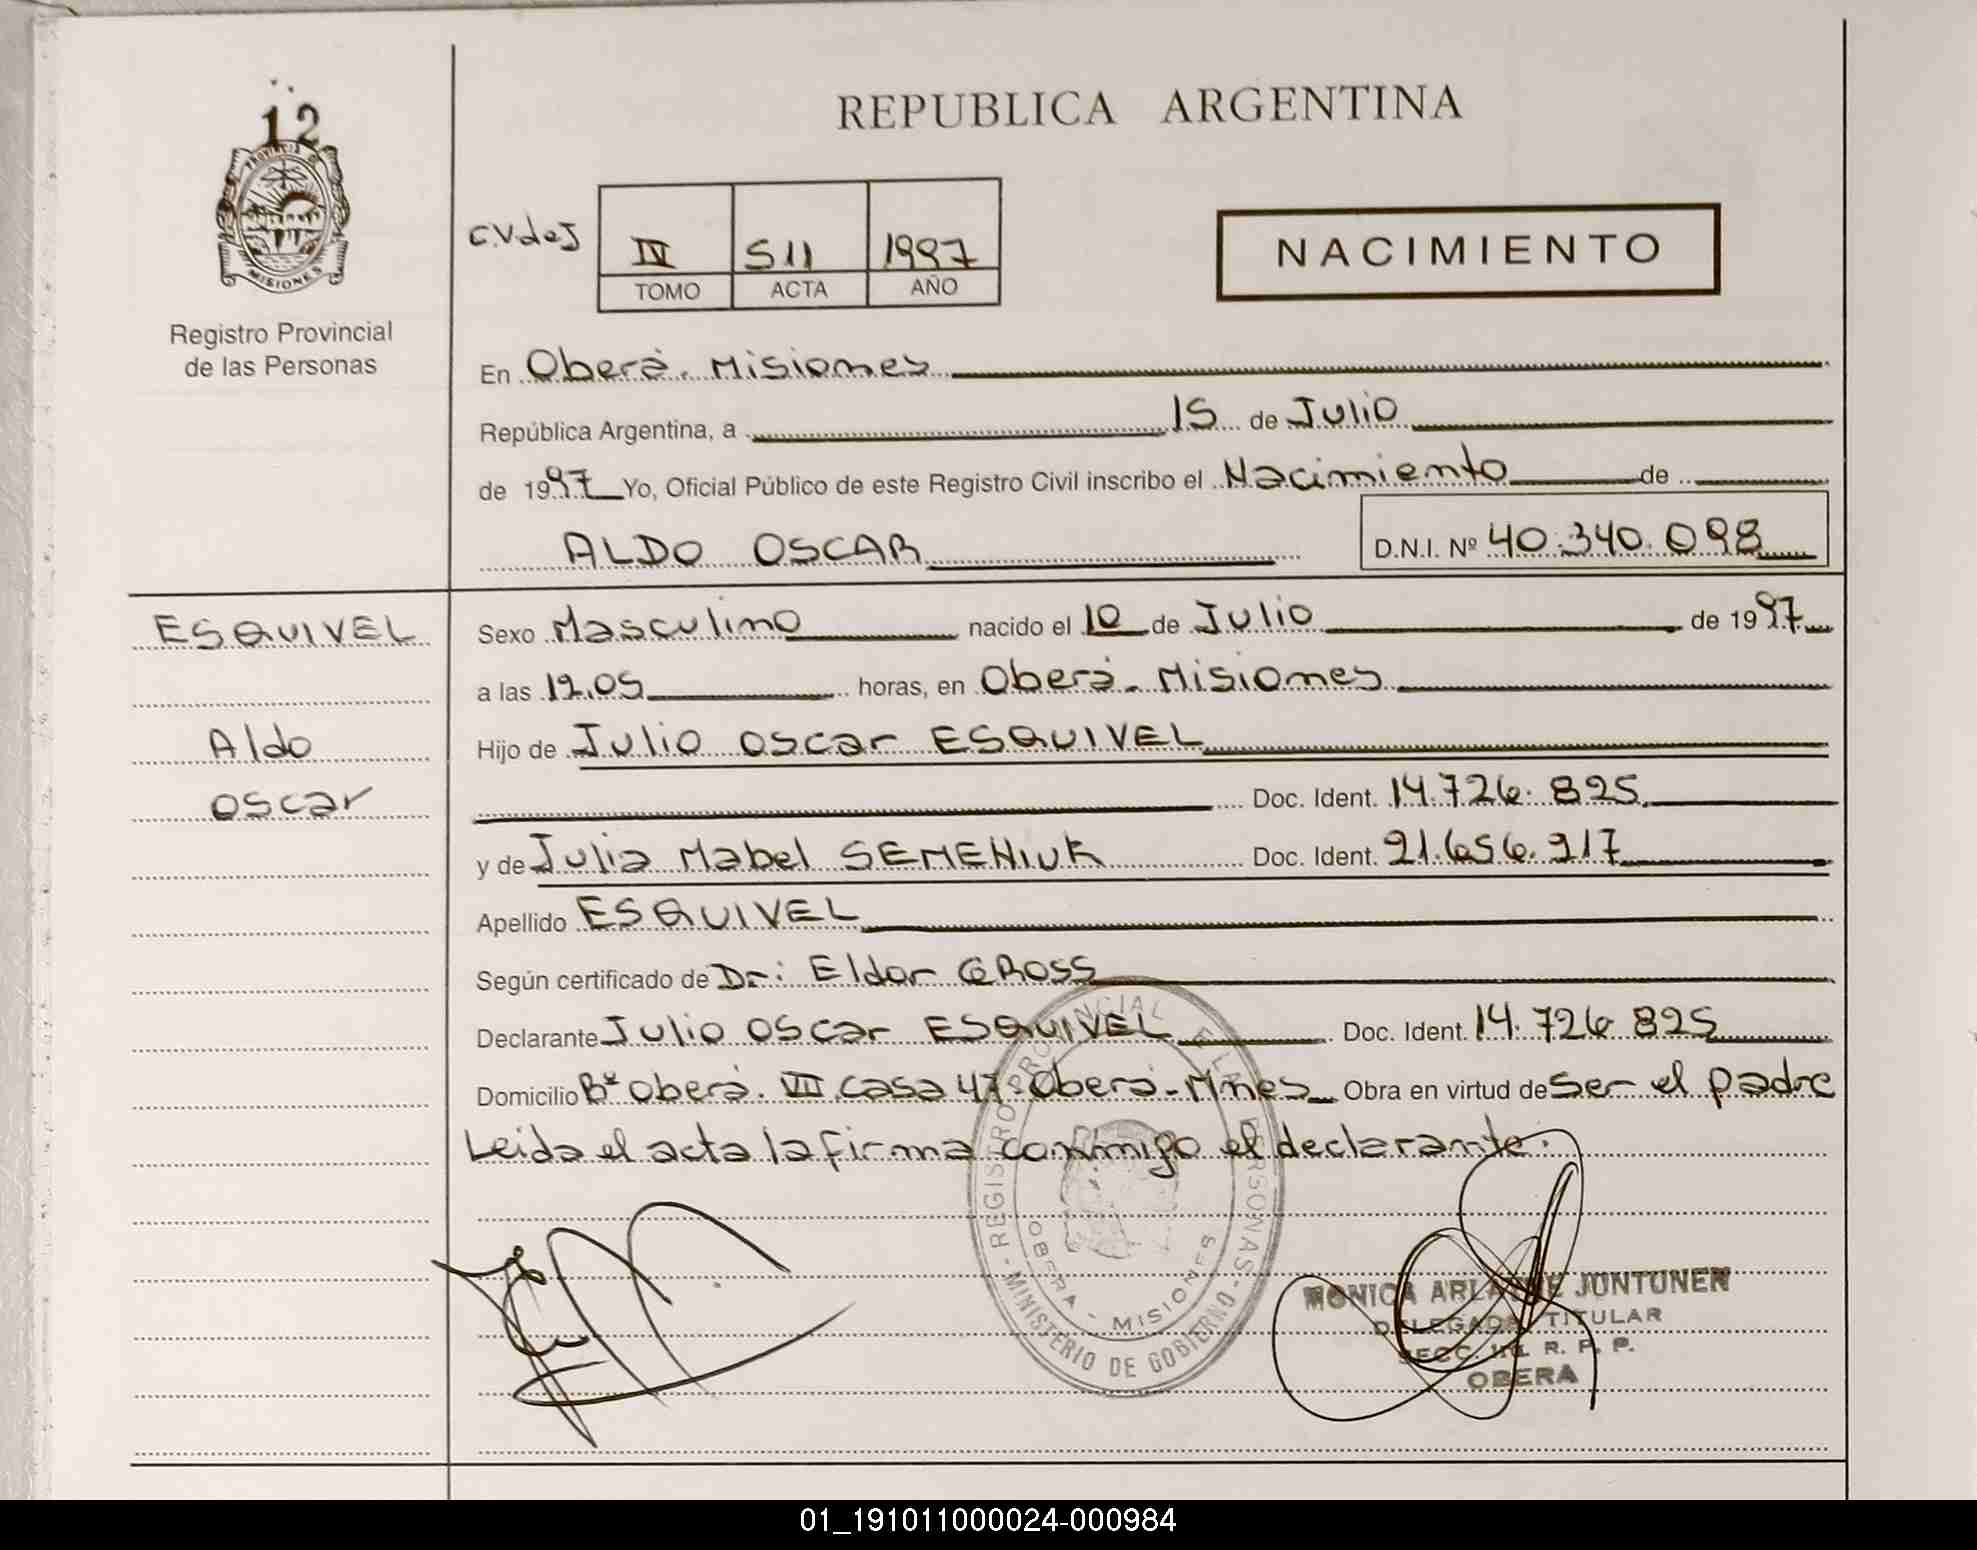 12
PROVINCIA D
MISIONES
Registro Provincial
de las Personas
REPUBLICA ARGENTINA
C.VdeJ
IV 511 1997
TOMO ACTA AÑO
NACIMIENTO
En Oberá. Misiones
República Argentina, a 15 de Julio
de 1997 Yo, Oficial Público de este Registro Civil inscribo el Nacimiento de
ALDO OSCAR D.N.I. Nº 40.340.098
ESQUIVEL
Aldo
Oscar
Sexo Masculino nacido el 10 de Julio de 1997
a las 12.05 horas, en Oberá. Misiones
Hijo de Julio Oscar ESQUIVEL
Doc. Ident. 14.726.825
y de Julia Mabel SEMENIUK Doc. Ident. 21.656.217
Apellido ESQUIVEL
Según certificado de Dr: Eldor GROSS
Declarante Julio Oscar ESQUIVEL Doc. Ident. 14.726 825
Domicilio Bº Oberá. VII Casa 47. Oberá-Mnes Obra en virtud de Ser el padre
Leida el acta la firma conmigo el declarante.
REGISTRO PROVINCIAL E LA PERSONAS - MINISTERIO DE GOBIERNO -
OBERA - MISIONES
MONICA JUNTUNEN
DELEGADA TITULAR
SECC. R. P. P.
OBERA
01_191011000024-000984